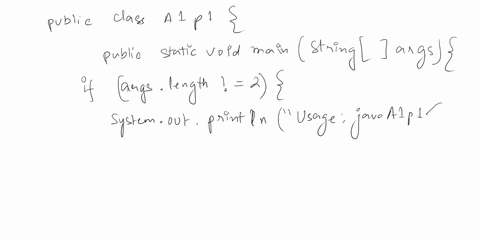 public class A1p1 {
public static void main (String[ ] args) {
if (args.length != 2) {
System.out.println ("Usage: java A1p1